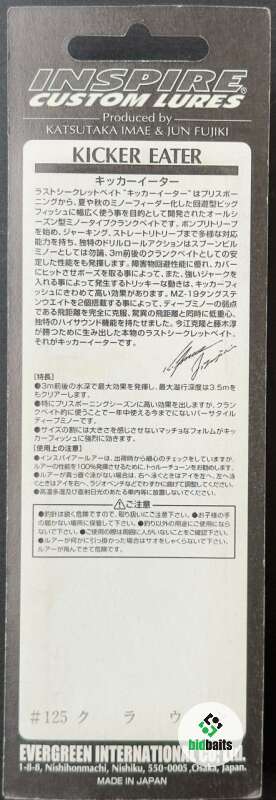 INSPIRE®
CUSTOM LURES
Produced by
KATSUTAKA IMAE & JUN FUJIKI
KICKER EATER
キッカーイーター
ラストシークレットベイト“キッカーイーター”はプリスポー
ニングから、夏や秋のミノーフィーダー化した回遊型ビッグ
フィッシュに幅広く使う事を目的として開発されたオールシー
ズン型ミノータイプクランクベイトです。ポンプリトリーブ
を始め、ジャーキング、ストレートリトリーブまで多様な対応
能力を持ち、独特のドリルロールアクションはスプーンビル
ミノーとしては勿論、3m前後のクランクベイトとしての安
定した性能をも発揮します。障害物回避性能に優れ、カバー
にヒットさせポーズを取る事によって、また、強いジャークを
入れる事によって発生するトリッキーな動きは、キッカーフィ
ッシュにきわめて高い効果があります。MZ-19タングス
テンウエイトを2個搭載する事によって、ディープミノーの弱点
である飛距離を完全に克服、驚異の飛距離と同時に低重心、
独特のハイサウンド機能を持たせました。今江克隆と藤木淳
が勝つために生み出した本物のラストシークレットベイト、
それがキッカーイーターです。
[特長]
●3m前後の水深で最大効果を発揮し、最大潜行深度は3.5mを
もクリアーします。
●特にプリスポーニングシーズンに高い効果を出しますが、クラ
ンクベイト的に使うことで一年中使える今までにないバーサタイル
ディープミノーです。
●サイズの割には大きさを感じさせないマッチョなフォルムがキッ
カーフィッシュを強烈に効きます。
[使用上の注意]
●インスパイアールアーは、出荷時から細心のチェックをしていますが、
ルアーの性能を100%発揮させるために、トゥルーチューンをお勧めします。
●ルアーが真っ直ぐ泳がない場合は、右へ泳ぐときはアイを左へ、左へ泳
ぐときはアイを右へ、ラジオペンチなどでわずかに曲げて調整してください。
●高温多湿及び直射日光のあたる車内等に放置しないでください。
⚠ご注意
●釣針は鋭く危険ですので、取り扱いにご注意下さい。●お子様の手
の届かない場所に保管して下さい。●釣り以外の用途にご使用になら
ないで下さい。●ご使用の際は周囲に人がいないことをご確認下さい。
●ルアーが何かに引っ掛かった場合はサオをしゃくらないで下さい。
ルアーが飛んできて危険です。
#125 クラウ
bidbaits
EVERGREEN INTERNATIONAL CO.,LTD.
1-8-8, Nishihonmachi, Nishiku, 550-0005, Osaka, Japan.
MADE IN JAPAN